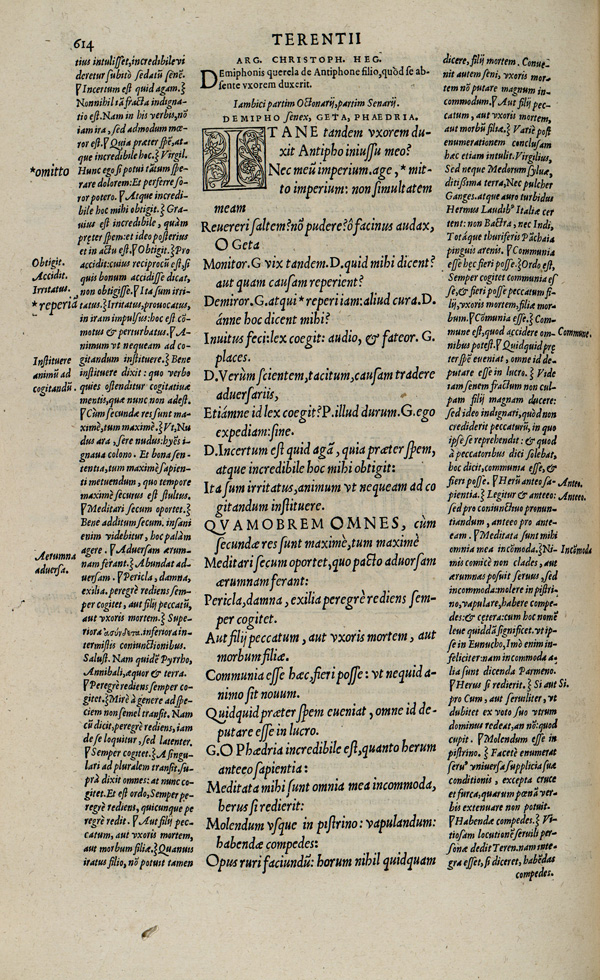 614
TERENTII
tius intulisset, incredibile vi
deretur subitò sedatũ senẽ.
Incertum est quid agam.
Nonnihil iã fracta indigna-
tio est. Nam in his verbis, nõ
iam ira, sed admodum mœ-
ror est. Quia præter spẽ, at-
que incredibile hoc. Virgil.
*omitto
Hunc ego si potui tãtum spe-
rare dolorem: Et perferre so-
ror potero. Atque incredi-
bile hoc mihi obtigit. Gra-
uius est incredibile, quàm
præter spem: et ideo posterius
et in actu est. Obtigit. Pro
Obtigit.
accidit: cuius reciprocũ est, si
Accidit.
quis bonum accidisse dicat,
Irritatus.
non obtigisse. Ita sum irri-
*reperiã
tatus. Irritatus, prouocatus,
in iram impulsus: hoc est cõ-
motus & perturbatus. A-
nimum vt nequeam ad co-
Instituere
gitandum instituere. Bene
animũ ad
instituere dixit: quo verbo
cogitandũ.
quies ostenditur cogitatiuæ
mentis, quæ nunc non adest.
Cùm secundæ res sunt ma-
ximè, tum maximè. Vt, Nu
dus ara, sere nudus: hyẽs i-
gnaua colono. Et bona sen-
tentia, tum maximè sapien-
ti metuendum, quo tempore
maximè securus est stultus.
Meditari secum oportet.
Bene additum secum. insani
enim videbitur, hoc palàm
agere. Aduersam ærum-
Aerumna
nam ferant. Abundat ad-
aduersa.
uersam. Pericla, damna,
exilia. peregrè rediens sem-
per cogitet, aut filij peccatũ,
aut vxoris mortem. Supe-
riora inferiora in-
termistis coniunctionibus.
Salust. Nam quidẽ Pyrrho,
Annibali, æquor & terra.
Peregrè rediens semper co-
gitet. Mirè à genere ad spe-
ciem non semel transit. Nam
cũ dicit, peregrè rediens, iam
de se loquitur, sed latenter.
Semper cogitet. A singu-
lari ad pluralem transit. su-
prà dixit omnes: at nunc co-
gitet. Et est ordo, Semper pe-
regrè redient, quicunque pe
regrè redit. Aut filij pec-
catum, aut vxoris mortem,
aut morbum filiæ. Quamuis
iratus filio, nõ potuit tamen
ARG. CHRISTOPH. HEG.
Demiphonis querela de Antiphone filio, quòd se ab-
sente vxorem duxerit.
Iambici partim Octonarij, partim Senarij.
DEMIPHO senex, GETA, PHAEDRIA.
ITANE tandem vxorem du-
xit Antipho iniussu meo?
Nec meũ imperium. age, * mit-
to imperium: non simultatem
meam
Reuereri saltem? nõ pudere? ô facinus audax,
O Geta
Monitor. G vix tandem. D. quid mihi dicent?
aut quam causam reperient?
Demiror. G. atqui * reperi iam: aliud cura. D.
ánne hoc dicent mihi?
Inuitus feci: lex coegit: audio, & fateor. G.
places.
D. Verùm scientem, tacitum, causam tradere
aduersariis,
Etiámne id lex coegit? P. illud durum. G. ego
expediam: sine.
D. Incertum est quid agã, quia præter spem,
atque incredibile hoc mihi obtigit:
Ita sum irritatus, animum vt nequeam ad co
gitandum instituere.
QVAMOBREM OMNES, cùm
secundæ res sunt maximè, tum maximè
Meditari secum oportet, quo pacto aduorsam
ærumnam ferant:
Pericla, damna, exilia peregrè rediens sem-
per cogitet.
Aut filij peccatum, aut vxoris mortem, aut
morbum filiæ.
Communia esse hæc, fieri posse: vt nequid a-
nimo sit nouum.
Quidquid præter spem eueniat, omne id de-
putare esse in lucro.
G. O Phædria incredibile est, quanto herum
anteeo sapientia:
Meditata mihi sunt omnia mea incommoda,
herus si redierit:
Molendum vsque in pistrino: vapulandum:
habendæ compedes:
Opus ruri faciundũ: horum nihil quidquam
dicere, filij mortem. Conue-
nit autem seni, vxoris mor-
tem nõ putare magnum in-
commodum. Aut filij pec-
catum, aut vxoris mortem,
aut morbũ filiæ. Variè post
enumerationem conclusam
hac etiam intulit. Virgilius,
Sed neque Medorum syluæ,
ditissima terra, Nec pulcher
Ganges. atque auro turbidus
Hermus Laudibꝰ Italiæ cer
tent: non Bactra, nec Indi,
Totáque thuriferis Pãchaia
pinguis arenis. Communia
esse hæc fieri posse. Ordo est,
Semper cogitet communia es
se, & fieri posse peccatum fi-
lij, vxoris mortem, filiæ mor-
bum. Cõmunia esse. Com-
mune est, quod accidere om-
Commune.
nibus potest. Quidquid prę
ter spẽ eueniat, omne id de-
putare esse in lucro. Vide
iam senem factum non cul-
pam filij magnam ducere:
sed ideo indignati, quòd non
crediderit peccaturũ, in quo
ipse se reprehendit: & quod
à peccatoribus dici solebat,
hoc dicit, communia esse, &
fieri posse. Herũ anteo sa-
Anteo.
pientia. Legitur & anteeo:
Anteeo.
sed pro coniunctio pronun-
tiandum, anteeo pro ante-
eam. Meditata sunt mihi
omnia mea incõmoda. Ni-
Incõmoda
mis comicè non clades, aut
ærumnas posuit seruus, sed
incommoda: molere in pistri-
no, vapulare, habere compe-
des: & cętera: cum hoc nomẽ
leue quiddã significet. vt ip-
se in Eunucho, Imò enim in-
feliciter: nam incommoda a-
lia sunt dicenda Parmeno.
Herus si redierit. Si aut
Si.
pro Cum, aut seruiliter, vt
dubitet ex voto suo vtrum
dominus redeat, an nõ: quod
cupit. Molendum esse in
pistrino. Facetè enumerat
seruꝰ vniuersa supplicia suæ
conditionis, excepta cruce
et furca, quarum pœnã ver-
bis extenuare non potuit.
Habendæ compedes. Vi-
tiosam locutionẽ seruili per-
sonæ dedit Teren. nam inte-
gra esset, si diceret, habẽdas
compedes.